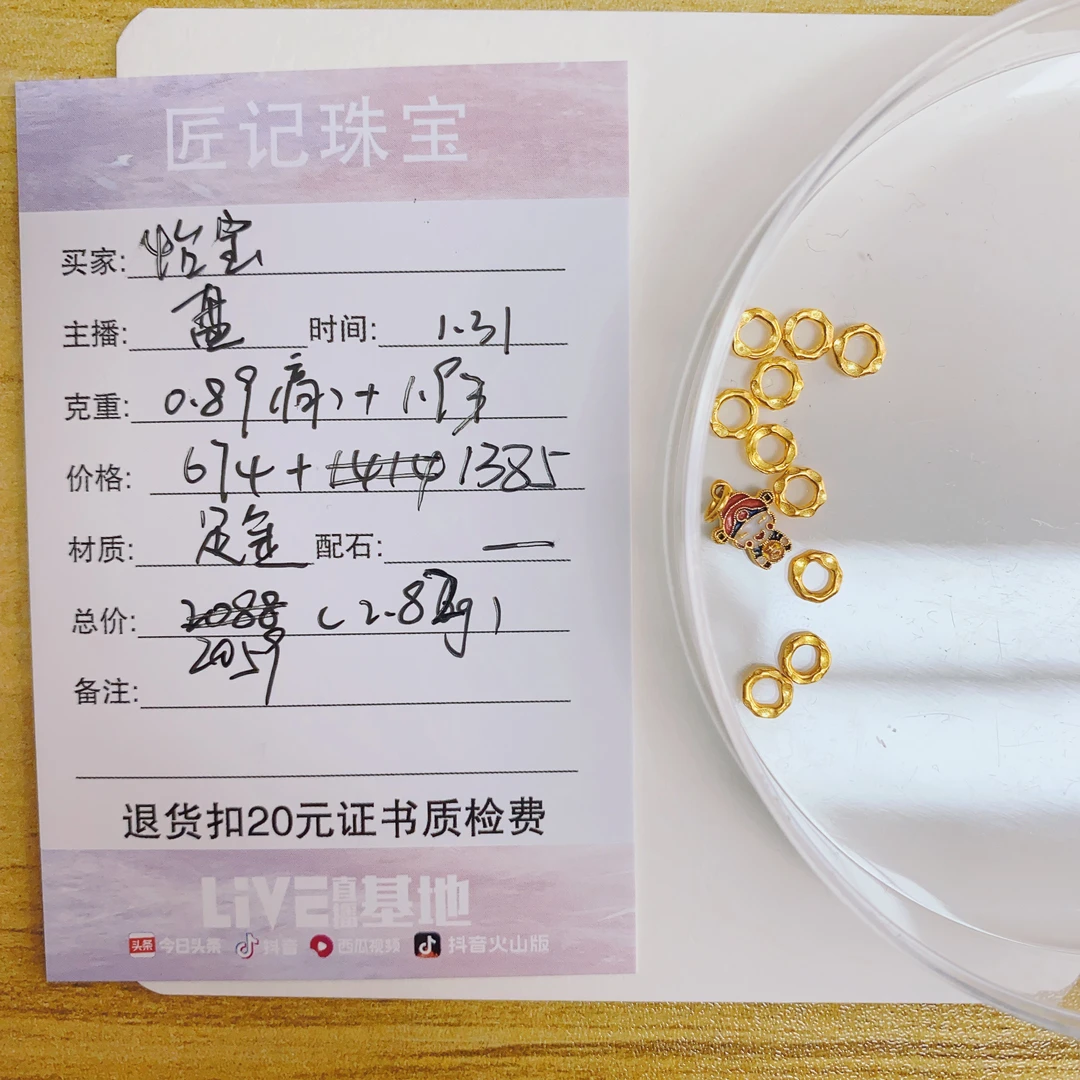 匠记珠宝
买家: 怡宝
主播: 盘 时间: 1.31
克重: 0.89 ( ) + 1.9
价格: 674 + 1414 1385
材质: 足金 配石: 一
总价: 2088 (2.8 g)
2059
备注:
退货扣20元证书质检费
LiVE直播基地
头条 今日头条 抖音 西瓜视频 抖音火山版